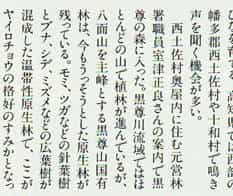 幡多郡西土佐村や十和村で鳴き
声を聞く機会が多い。
　西土佐村奥屋内に住む元営林
署職員室津正良さんの案内で黒
尊の森に入った。黒尊川流域ではほ
とんどの山で植林が進んでいるが、
八面山を主峰とする黒尊山国有
林は、今もうっそうとした原生林が
残っている。モミ、ツガなどの針葉樹
とブナ・シデ、ミズメなどの広葉樹が
混成した温帯性原生林で、ここが
ヤイロチョウの格好のすみかとなっ